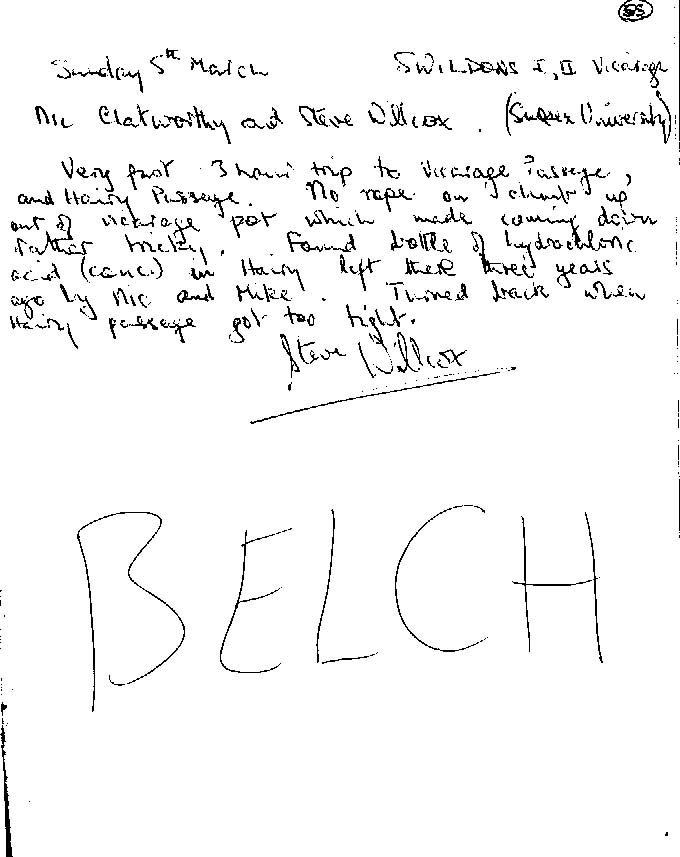 85
Sunday 5th March SWILDONS I, II Vicarage
Nic Clatworthy and Steve Willcox. (Sussex University)
Very fast 3 hour trip to Vicarage Passage,
and Hairy Passage. No rope on climb up
out of vicarage pot which made coming down
rather tricky. Found bottle of hydrochloric
acid (conc.) in Hairy left there three years
ago by Nic and Mike. Turned back when
Hairy passage got too tight.
Steve Willcox
BELCH